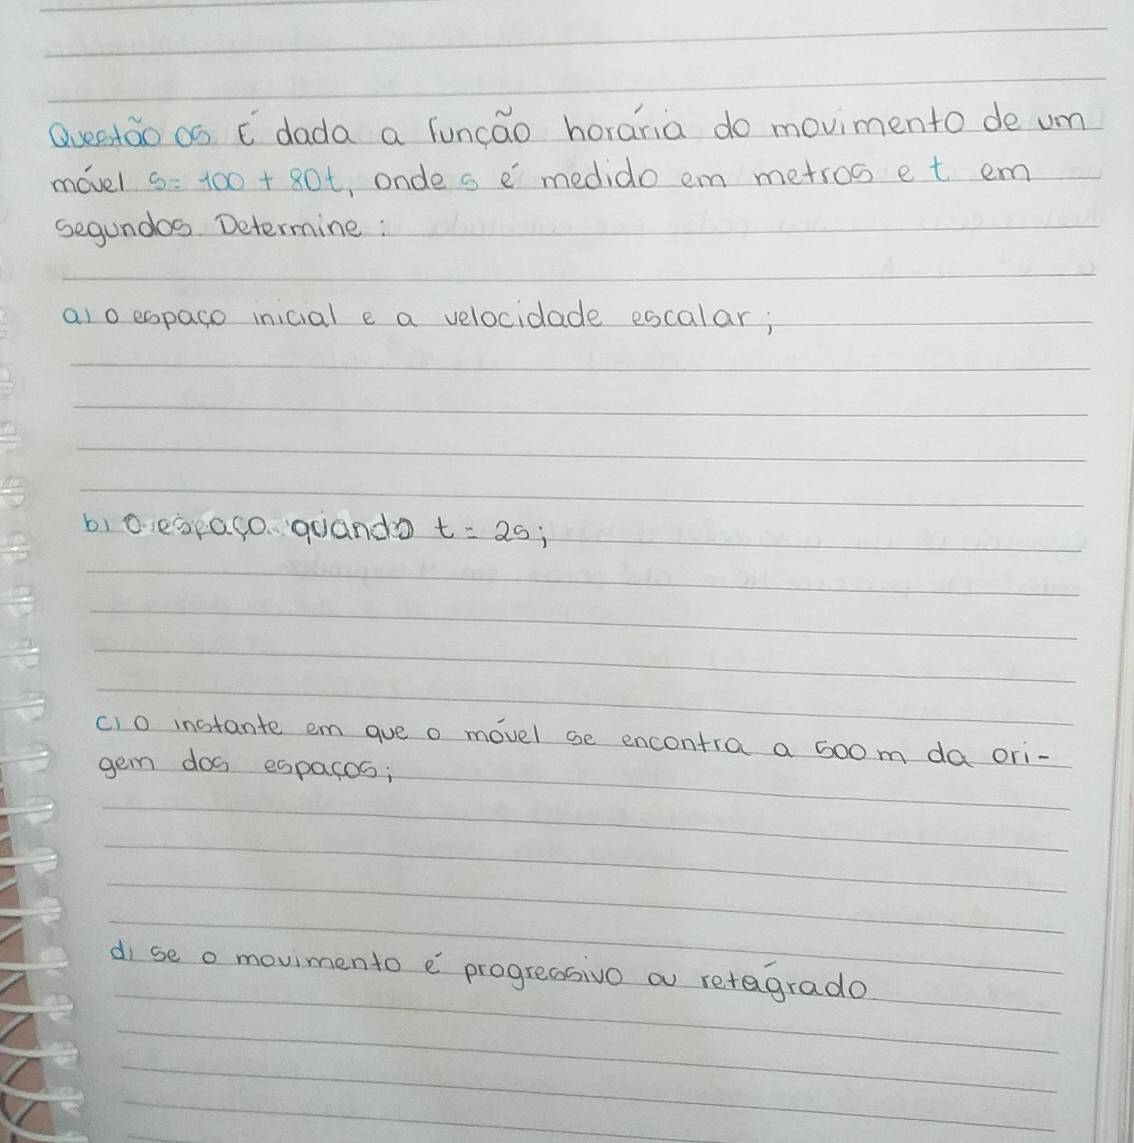 Questão 05 É dada a função horária do movimento de um
móvel s= 100 + 80t, onde s é medido em metros e t em
segundos. Determine:
a) o espaço inicial e a velocidade escalar;
b) o espaço quando t = 2s;
c) o instante em que o móvel se encontra a 500 m da ori-
gem dos espaços;
d) se o movimento é progressivo ou retógrado